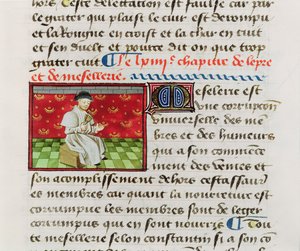 hors Ceste delectation est faulse car par
le grater qui plaist le cuir est derompu
et la rongne en croist et la char en cuit
et sen deult et pourtre dit on que trop
grater cuit Le lxiiiie chapitre de lepre
et de mesellerie
Meselerie est
une corrupcion
universelle des mem
bres et des humeurs
qui a son commence
ment des ventes et
son acomplissement dehors cestassavoir
es membres car quant la nourreture est
corrumpue les membres sont de leger
corrumpus qui en sont nourris Tou
te mesellerie selon constantin si a son co